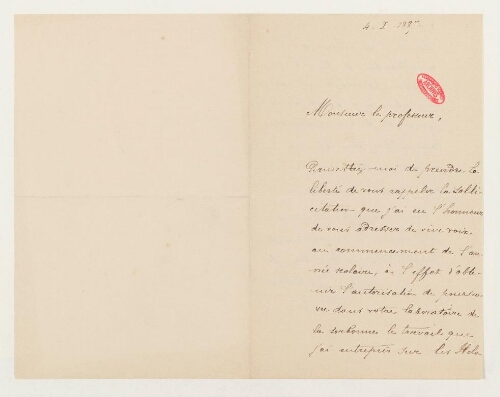 4. I. 189
Monsieur le professeur,
Permettez-moi de prendre la
liberté de vous rappeler la solli-
citation que j'ai eu l'honneur
de vous adresser de vive voix,
au commencement de l'an-
née scolaire, à l'effet d'obte-
nir l'autorisation de poursui-
vre dans votre laboratoire de
la Sorbonne le travail que
j'ai entrepris sur les Hélo